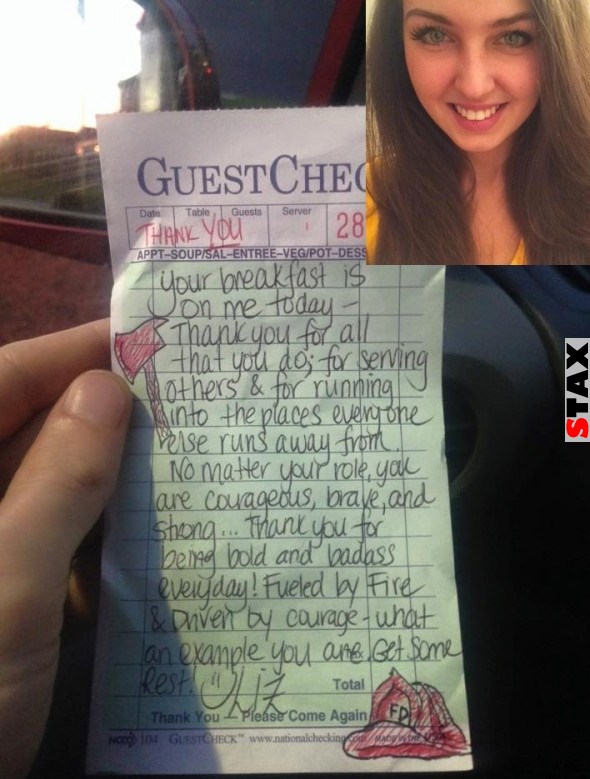 GUESTCHEC
Date Table Guests Server
THANK YOU 28
APPT–SOUP/SAL–ENTREE–VEG/POT–DESS
your breakfast is
on me today -
Thank you for all
that you do; for serving
others & for running
into the places everyone
else runs away from.
No matter your role, you
are courageous, brave, and
strong... Thank you for
being bold and badass
everyday! Fueled by Fire
& Driven by courage - what
an example you are. Get some
Rest. Liz
Total
FD
Thank You – Please Come Again
104 GUESTCHECK™ www.nationalchecking.com MADE IN THE
STAX